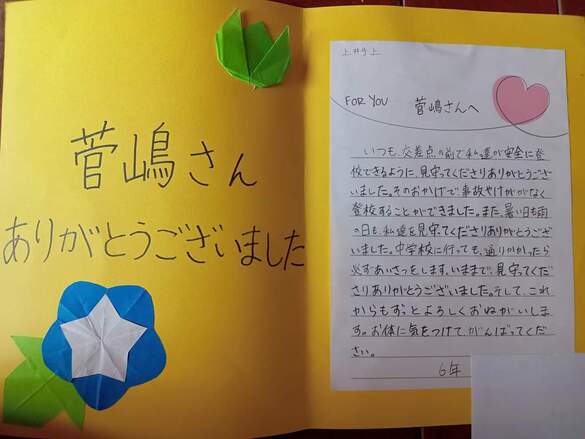 菅嶋さん
ありがとうございました
FOR YOU 菅嶋さんへ
いつも、交差点の前で私達が安全に登
校できるように、見守ってくださりありがとうござ
いました。そのおかげで事故やけががなく
登校することができました。また、暑い日も雨
の日も私達を見守ってくださりありがとうござい
ました。中学校に行っても、通りかかったら
必ずあいさつをします。いままで、見守ってくだ
さりありがとうございました。そして、これ
からもずっとよろしくおねがいしま
す。お体に気をつけて、がんばってくだ
さい。
6年